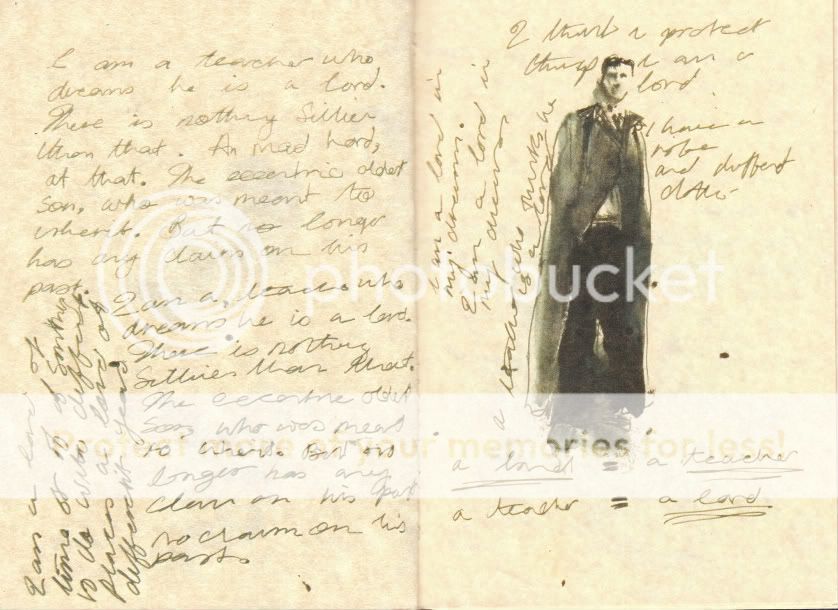 I am a teacher who,
dreams he is a lord.
There is nothing Sillier
than that. An mad
at that. The eccentric oldest
Son, who was meant to
inherit. But no longer
has any claim on his
past.
I am a teacher who
dreams he is a lord.
There is nothing
Sillier than that.
The eccentric oldest
Son who was meant
to inherit. But no
longer has any
claim on his past
no claim on his
past.
I am a lord of
time or is it
to do with different
places a lord of
different years
I think I protect
things I am a
lord
I have a
robe
and different
I am a lord in
my dreams.
I am a lord in
my dreams
a teacher who thinks he
is a lord
a lord = a teacher
a teacher = a lord
photobucket
Protect more of your memories for less!